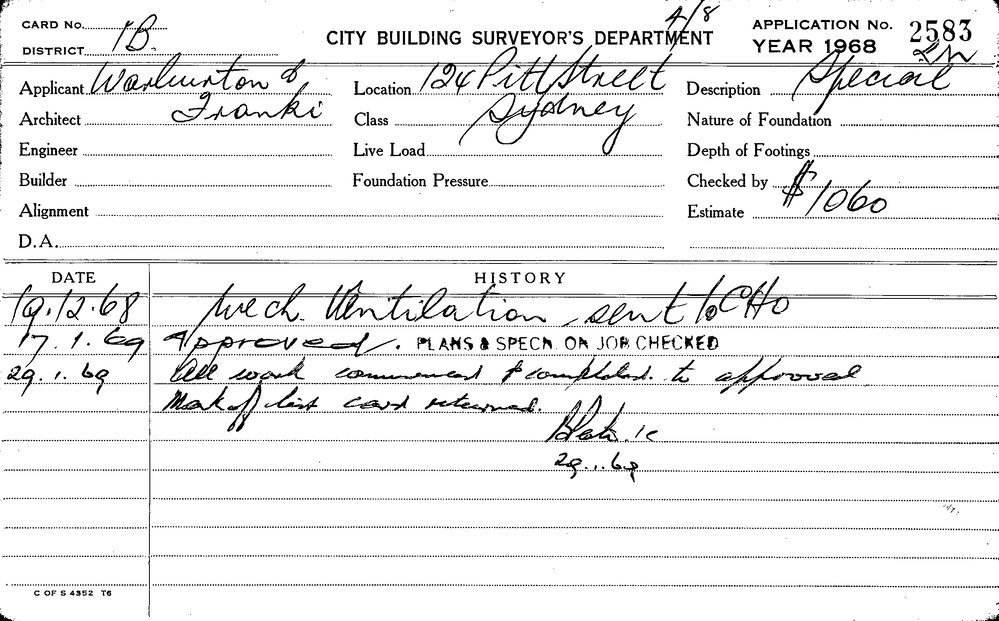 4/8
CARD No. APPLICATION No. 2583
DISTRICT 1B. CITY BUILDING SURVEYOR'S DEPARTMENT YEAR 1968
Applicant Warburton & Location 124 Pitt Street Description Special
Architect Franki Class Sydney Nature of Foundation
Engineer Live Load Depth of Footings
Builder Foundation Pressure Checked by
Alignment Estimate $1060
D.A.
DATE HISTORY
19.12.68 Mech. Ventilation sent to CHO
17.1.69 Approved. PLANS & SPECN. ON JOB CHECKED
29.1.69 All work commenced & completed to approval
Mark off list card returned.
29.1.69
C OF S 4352 T6